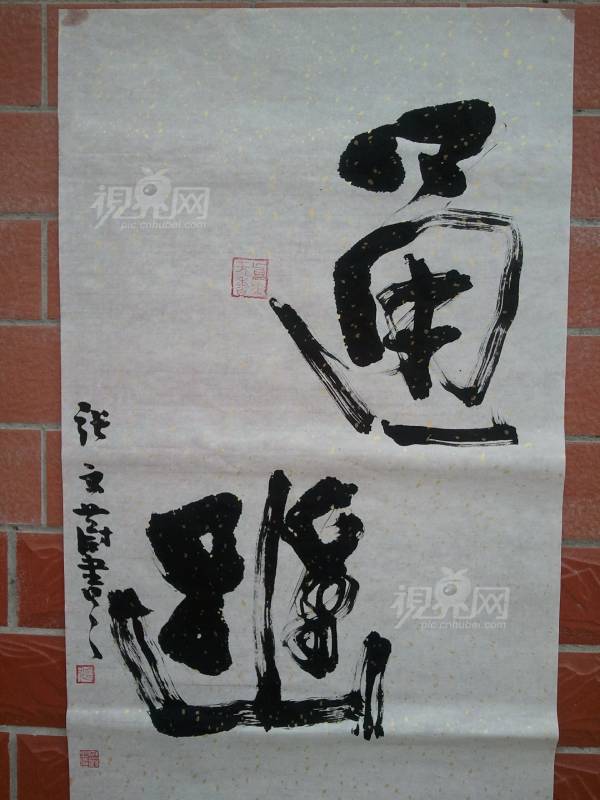 通
幽
張文蔚書
視界网
pic.cnhubei.com
視界网
pic.cnhubei.com